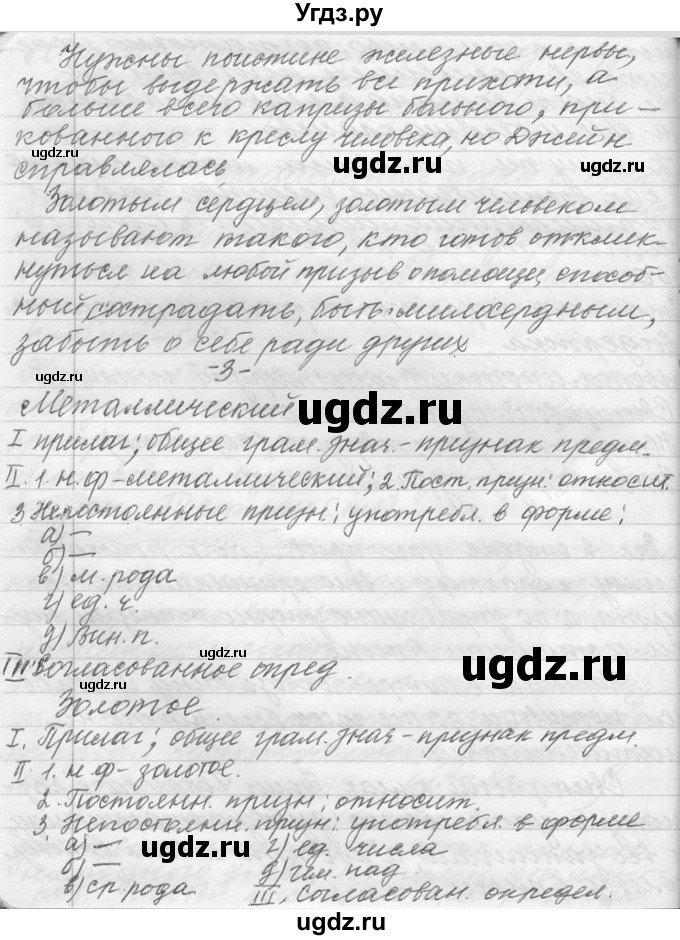 Угдз.ру
Нужны поистине железные нервы,
чтобы выдержать все прихоти, а
больше всего капризы больного, при-
кованного к креслу человека, но Джейн
справлялась
Золотым сердцем, золотым человеком
называют такого, кто готов отклик-
нуться на любой призыв о помощи, способ-
ный сострадать, быть милосердным,
забыть о себе ради других
-3-
Металлический
I прилаг; общее грам. знач.- признак предм.
II. 1. н.ф-металлический; 2. Пост. призн: относит.
3. Непостоянные призн: употребл. в форме:
а) —
б) —
в) м. рода
г) ед. ч.
д) Вин. п.
III Согласованное опред.
Золотое
I. Прилаг; общее грам. знач- признак предм.
II 1. н.ф- золотое.
2. Постоянн. призн: относит.
3. Непостоянн. призн: употребл. в форме
а) — г) ед. числа
б) — д) им. пад.
в) ср. рода III. Согласован. определ.
ugdz.ru
ugdz.ru
ugdz.ru
ugdz.ru
ugdz.ru
ugdz.ru
ugdz.ru
ugdz.ru
ugdz.ru
ugdz.ru
ugdz.ru
ugdz.ru
ugdz.ru